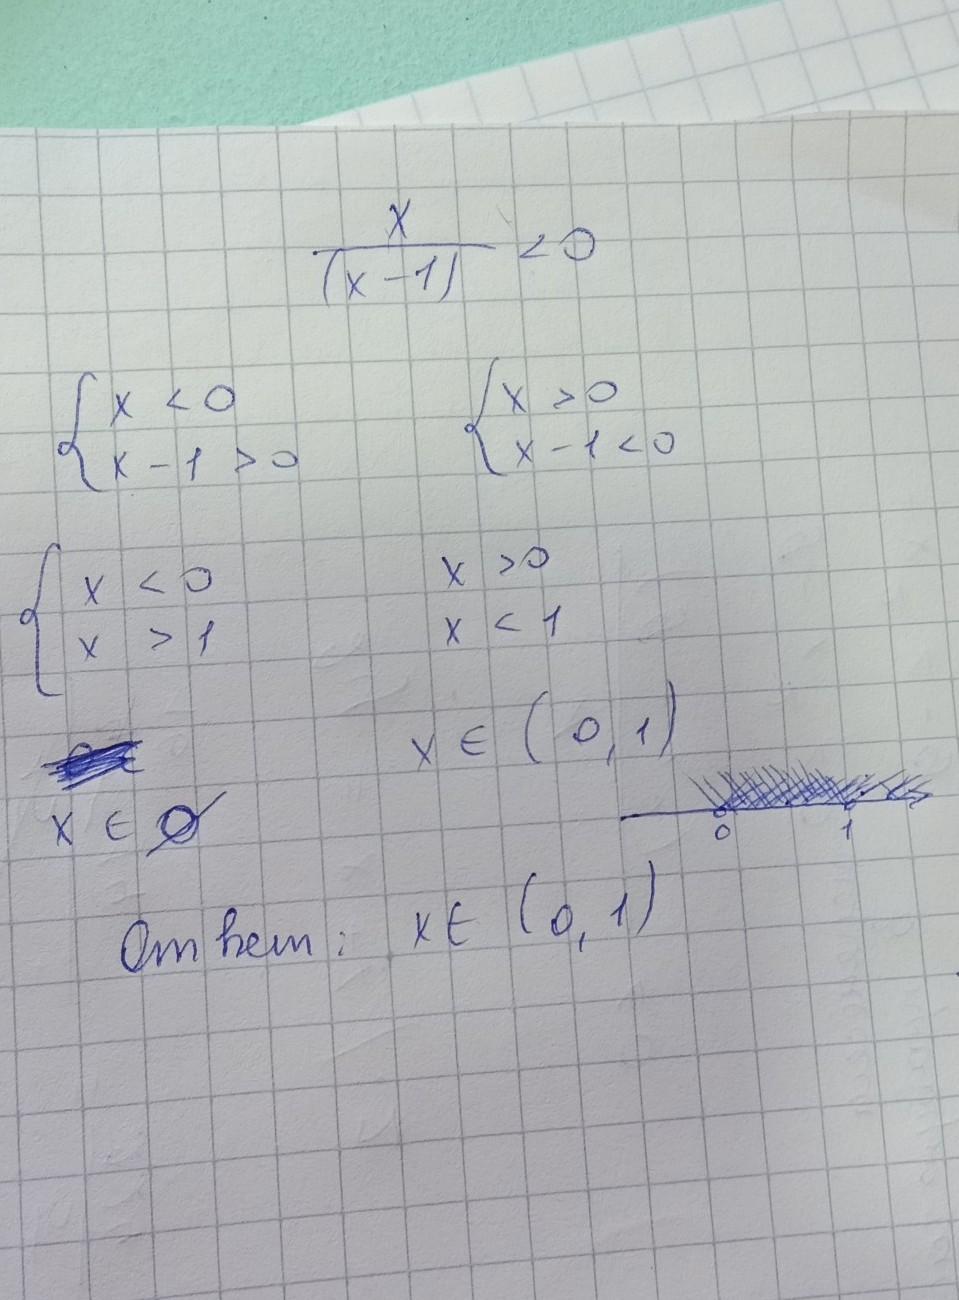 x
(x-1) < 0
{ x < 0 { x > 0
x - 1 > 0 x - 1 < 0
{ x < 0 x > 0
x > 1 x < 1
x ∈ (0, 1)
x ∈ ∅
0 1
Ответ: x ∈ (0, 1)